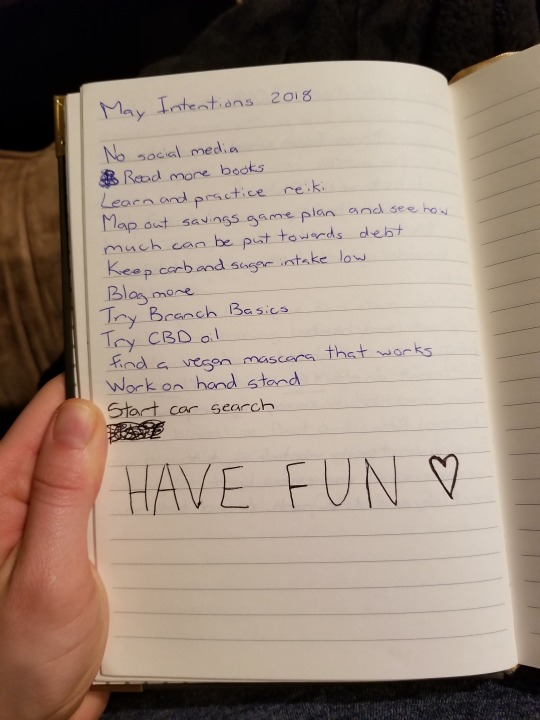 May Intentions 2018
No social media
Read more books
Learn and practice reiki
Map out savings game plan and see how
much can be put towards debt
Keep carb and sugar intake low
Blog more
Try Branch Basics
Try CBD oil
find a vegan mascara that works
Work on hand stand
Start car search
HAVE FUN ♡